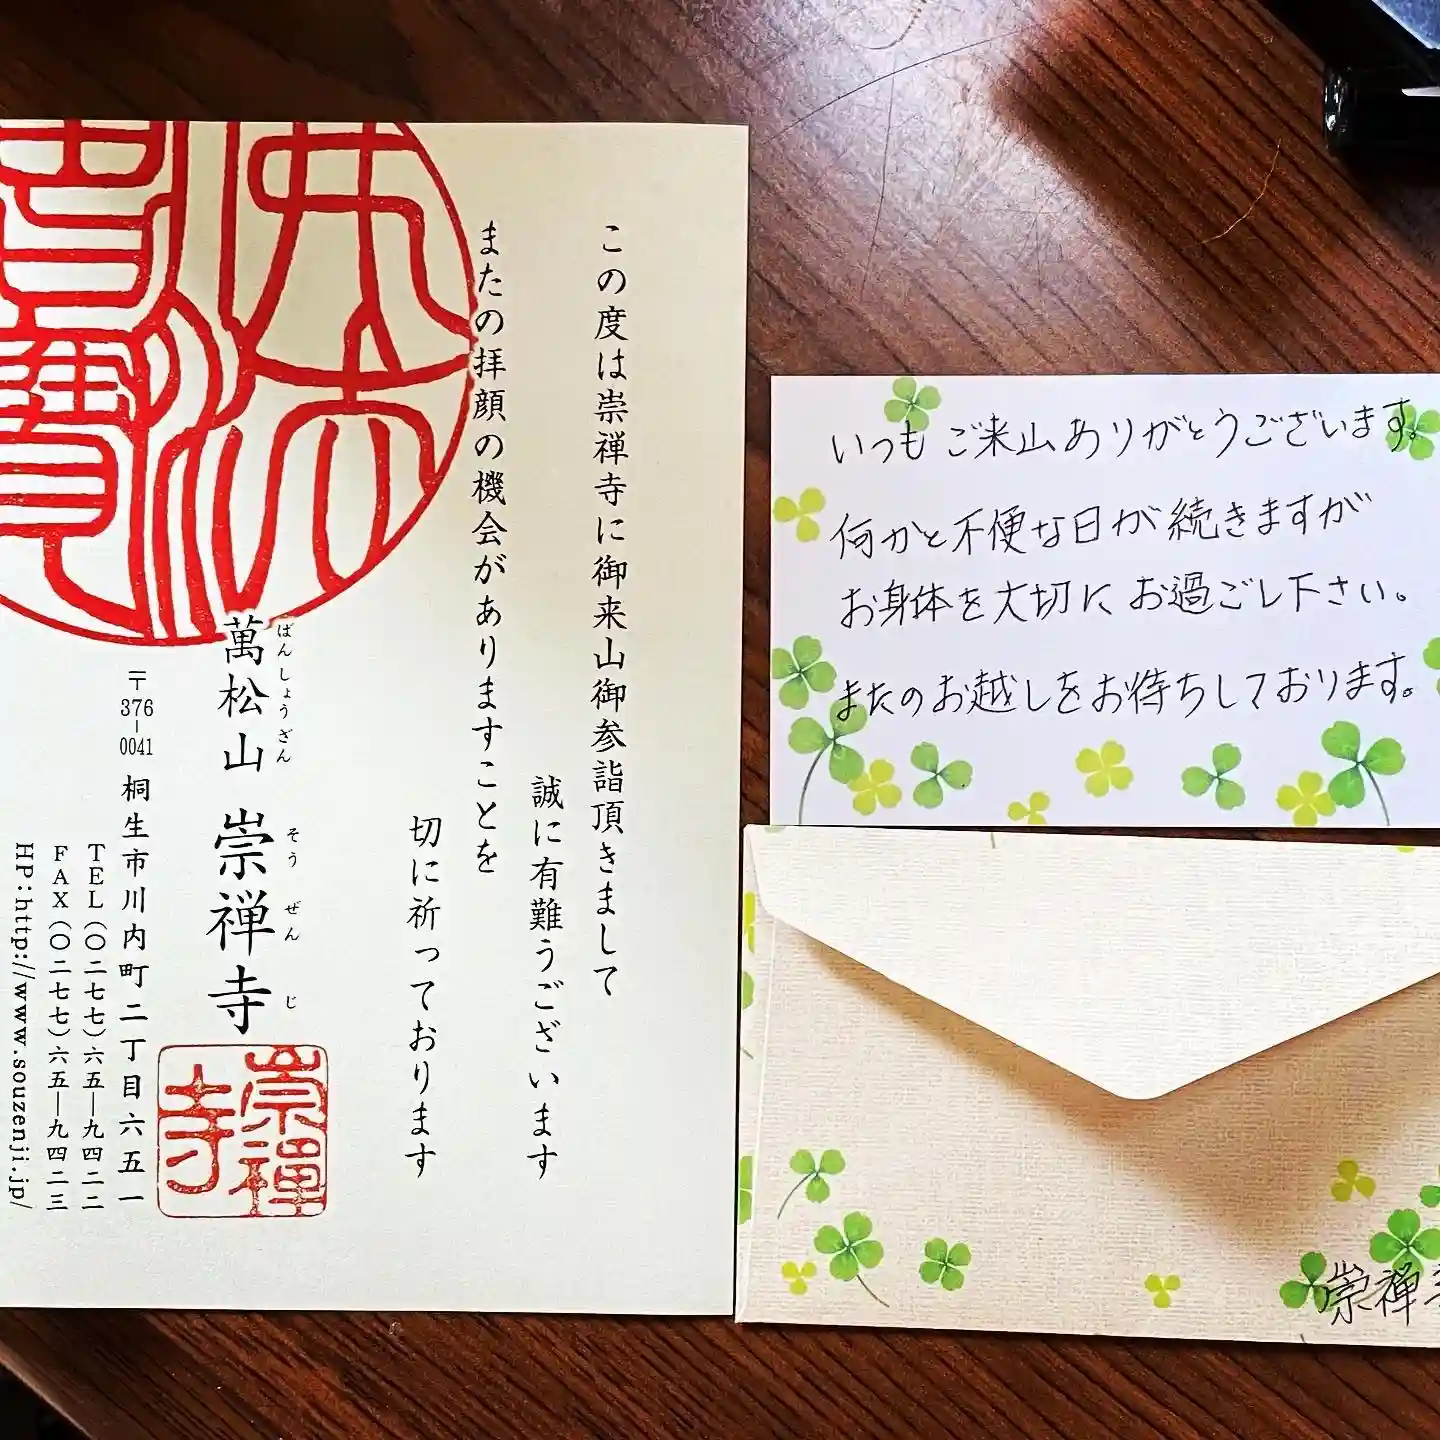 この度は崇禅寺に御来山御参詣頂きまして
誠に有難うございます
またの拝顔の機会がありますことを
切に祈っております
萬松山 崇禅寺
ばんしょうざん そうぜんじ
〒376-0041 桐生市川内町二丁目六五一
TEL(〇二七七)六五―九四二二
FAX(〇二七七)六五―九四二三
HP:http://www.souzenji.jp/
崇禅寺
いつもご来山ありがとうございます。
何かと不便な日が続きますが
お身体を大切にお過ごし下さい。
またのお越しをお待ちしております。
崇禅寺